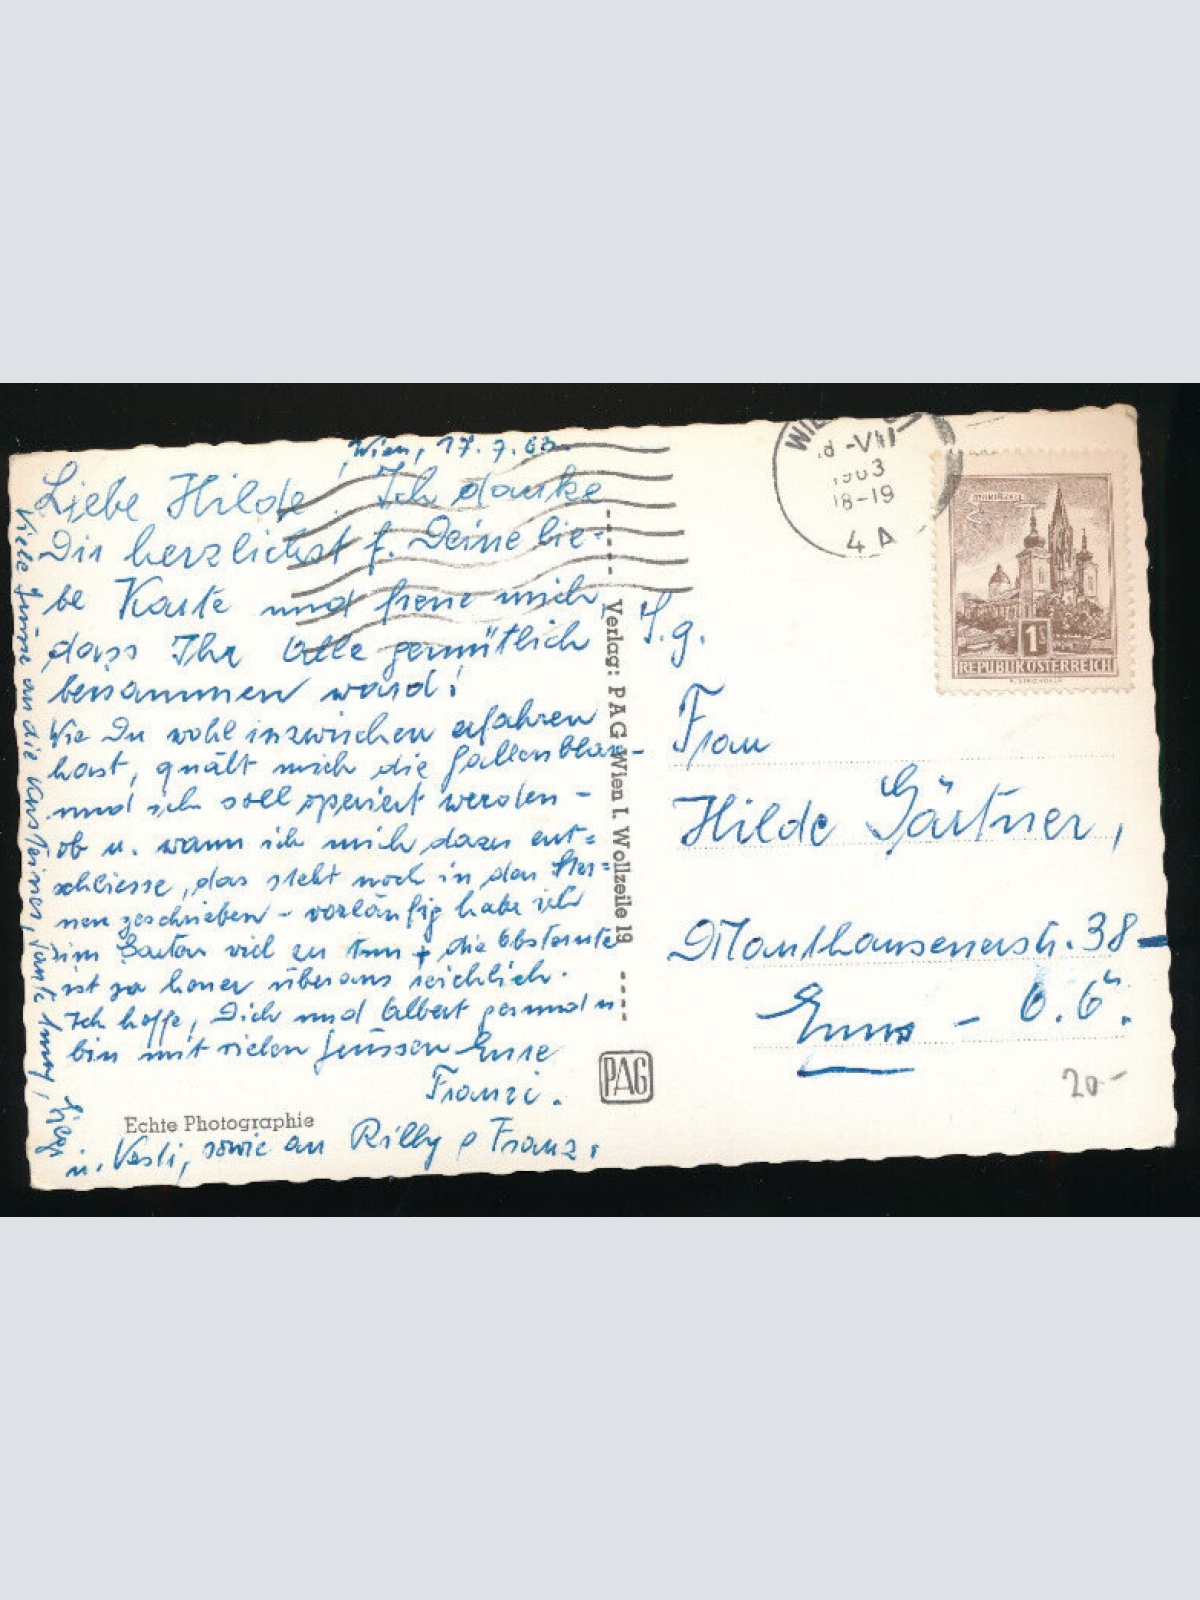 Wien, 17.7.63.
Liebe Hilde! Ich danke
Dir herzlichst f. Deine lie-
be Karte und freue mich,
dass Ihr Alle gemütlich
beisammen ward!
Wie Du wohl inzwischen erfahren
hast, quält mich die Gallenblase
und ich soll operiert werden -
ob u. wann ich mich dazu ent=
schliesse, das steht noch in den Ster=
nen geschrieben - vorläufig habe ich
im Garten viel zu tun + die Obsternte
ist ja heuer überaus reichlich.
Ich hoffe, Dich und Albert gesund u.
bin mit vielen Grüssen Eure
Franzi.
Viele Grüsse an die Tante
u. Vesti, sowie an Rilly e Franz.
Echte Photographie
Verlag: PAG Wien I. Wollzeile 19
PAG
WIE
8 -VII
1963
18-19
4 A
MARIAZELL
1S
REPUBLIK ÖSTERREICH
S.g.
Frau
Hilde Gärtner,
Mauthausenerstr. 38-
Enns - O.Ö.
20-